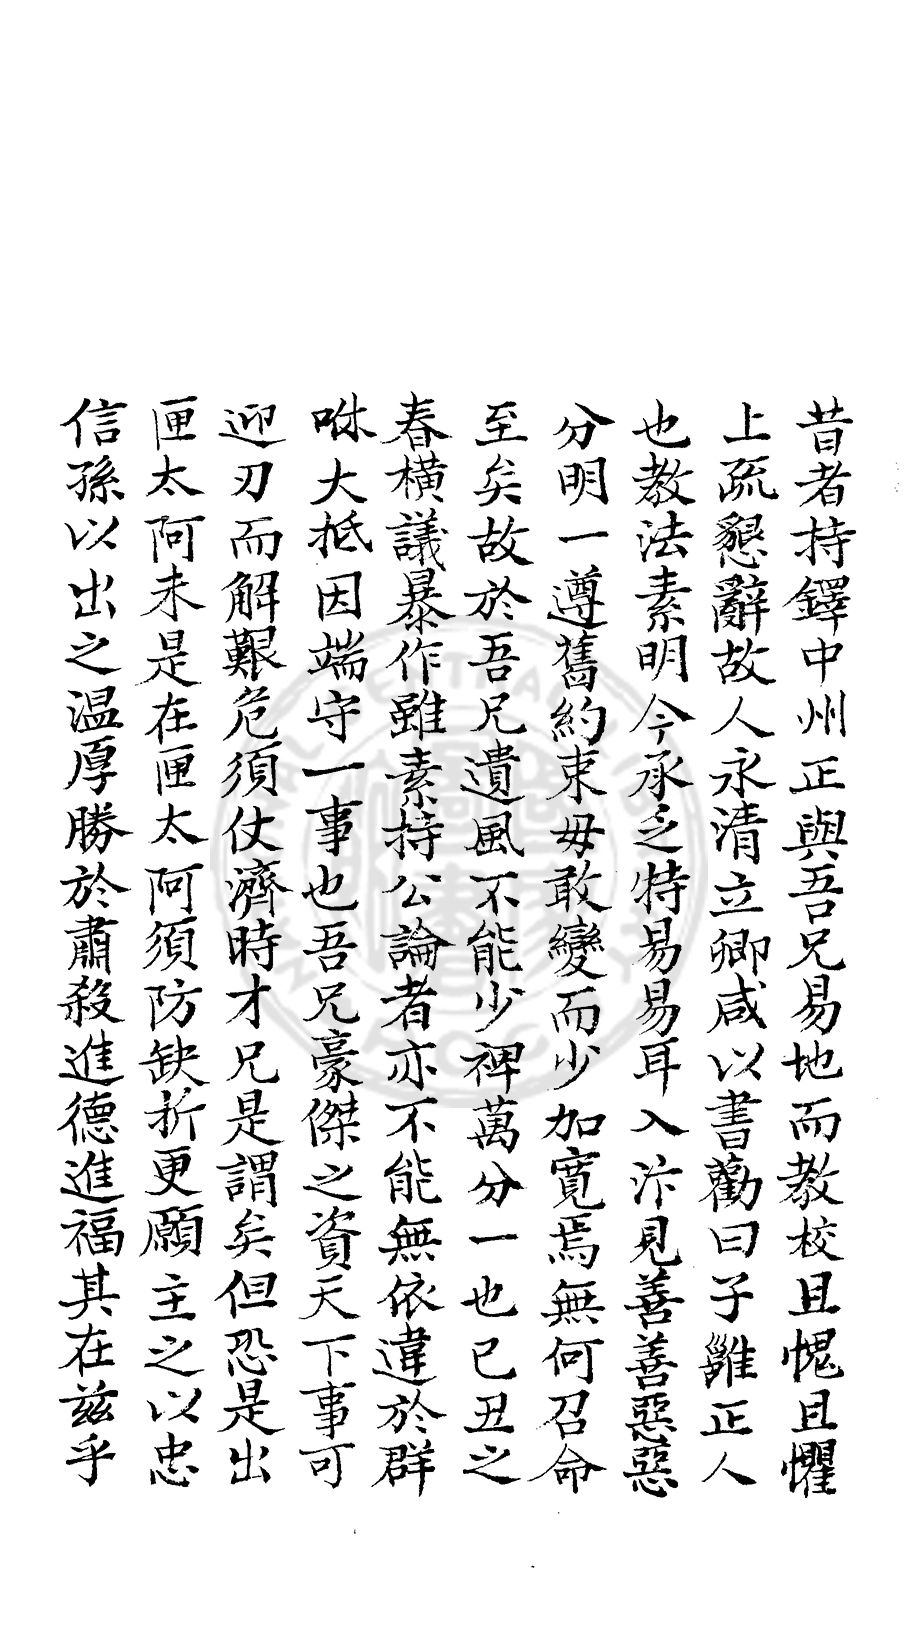 昔者持鐸中州正與吾兄易地而教校且愧且懼
上疏懇辭故人永清立卿咸以書勸曰子雖正人
也教法素明今承乏特易易耳入汴見善善惡惡
分明一遵舊約束毋敢變而少加寬焉無何召命
至矣故於吾兄遺風不能少裨萬分一也已丑之
春橫議暴作雖素持公論者亦不能無依違於群
咻大抵因端守一事也吾兄豪傑之資天下事可
迎刃而解艱危須仗濟時才兄是謂矣但恐是出
匣太阿未是在匣太阿須防缺折更願主之以忠
信孫以出之溫厚勝於肅殺進德進福其在茲乎